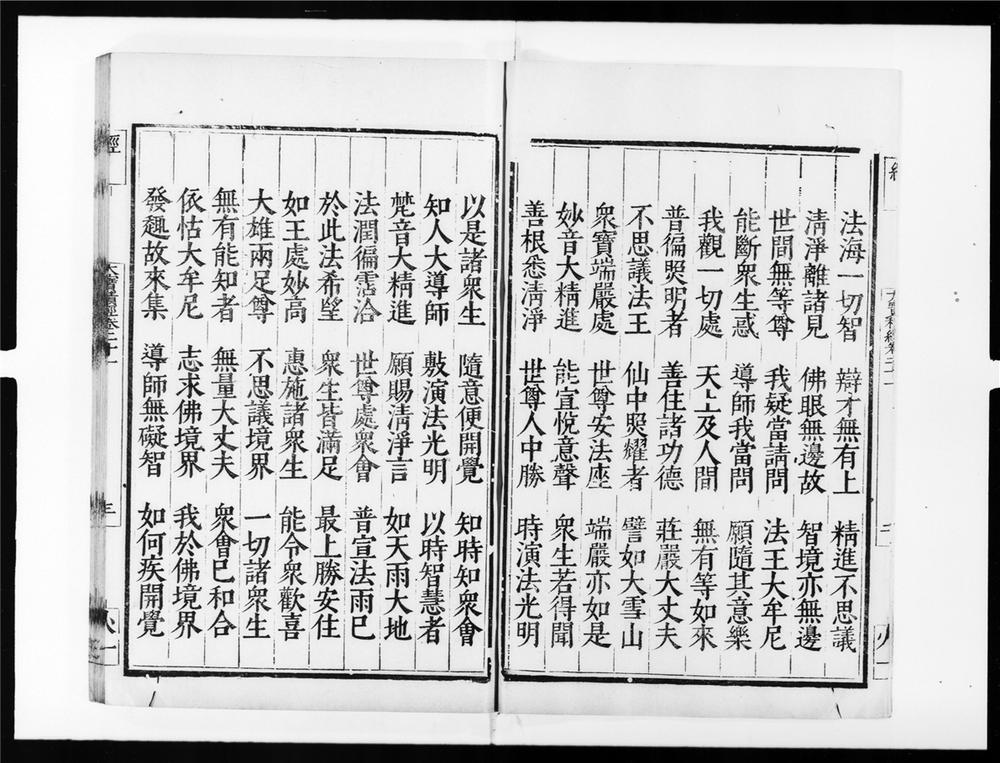 法海一切智 辯才無有上 精進不思議
清淨離諸見 佛眼無邊故 智境亦無邊
世間無等尊 我疑當請問 法王大牟尼
能斷衆生惑 導師我當問 願隨其意樂
我觀一切處 天上及人間 無有等如來
普徧照明者 善住諸功德 莊嚴大丈夫
不思議法王 仙中照耀者 譬如大雪山
衆寶端嚴處 世尊安法座 端嚴亦如是
妙音大精進 能宣悅意聲 衆生若得聞
善根悉清淨 世尊人中勝 時演法光明
以是諸衆生 隨意便開覺 知時知衆會
知人大導師 敷演法光明 以時智慧者
梵音大精進 願賜清淨言 如天雨大地
法潤徧霑洽 世尊處衆會 普宣法雨已
於此法希望 衆生皆滿足 最上勝安住
如王處妙高 惠施諸衆生 能令衆歡喜
大雄兩足尊 不思議境界 一切諸衆生
無有能知者 無量大丈夫 衆會已和合
依怙大牟尼 志求佛境界 我於佛境界
發趣故來集 導師無礙智 如何疾開覺
經
大寶積經卷二十一
三